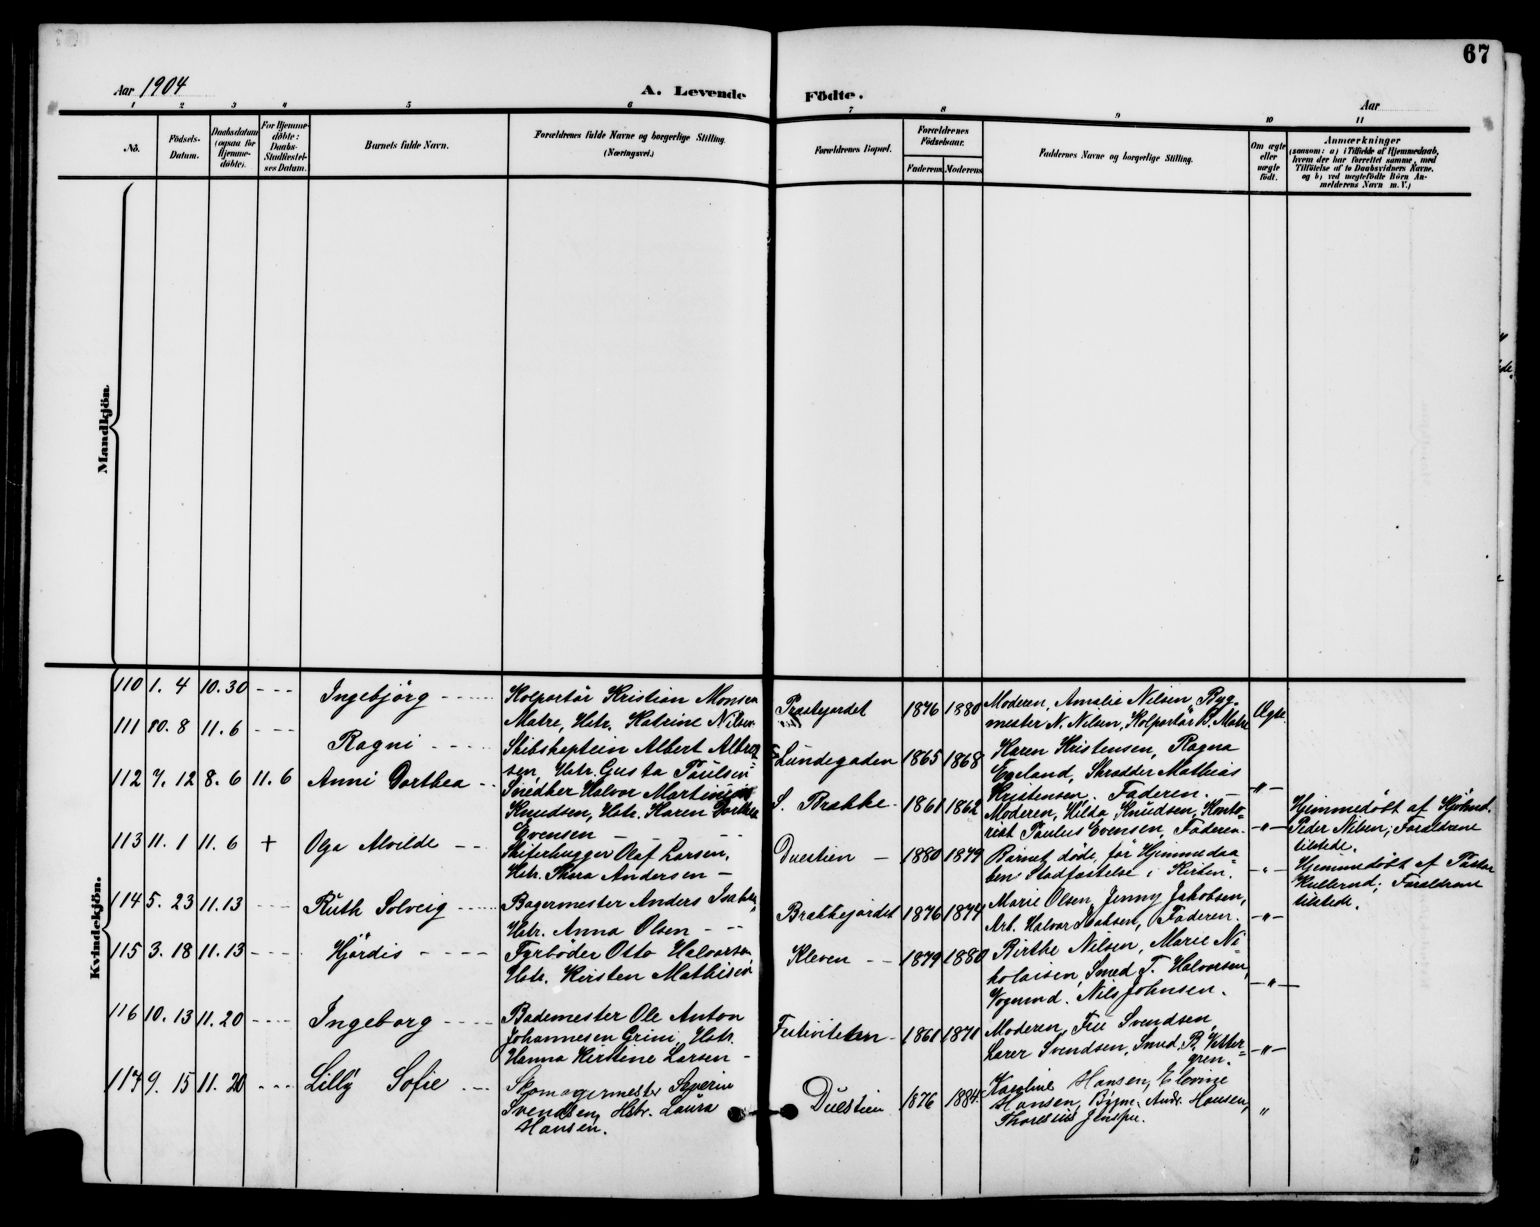 67
Aar 1904
A. Levende Födte.
Aar
1 2 3 4 5 6 7 8 9 10 11
No.
Födsels-
Datum.
Daabsdatum
(ogsaa for
Hjemme-
döbte).
For Hjemme-
döbte:
Daabs-
Stadfæstel-
ses Datum.
Barnets fulde Navn.
Forældrenes fulde Navne og borgerlige Stilling
(Næringsvei.)
Forældrenes Bopæl.
Forældrenes
Födselsaar.
Faderens Moderens
Faddernes Navne og borgerlig Stilling.
Om ægte
eller
uægte
födt.
Anmærkninger
(saasom: a) i Tilfælde af Hjemmedaab,
hvem der har forrettet samme, med
Tilföielse af to Daabsvidners Navne.
og b) ved uægtefödte Börn An-
melderens Navn m. V.)
Mandkjön.
Kvindekjön.
110 1. 4 10.30 - - - Ingebjörg - - -
Kolportör Kristian Monsen
Matre, Hstr. Katrine Nilsen
Præstejordet 1876 1880
Moderen, Amalie Nilsen, Byg-
mester N. Nilsen, Kolportör K. Matre
Ægte
111 10. 8 11. 6 - - - Ragni - - -
Skibskaptein Albert Albret-
sen, Hstr. Gusta Paulsen
Lundegaden 1865 1868
Karen Kristensen, Ragna
Eveland, Skrædder Mathias
Kristensen. Faderen. -
-"-
112 7. 12 8. 6 11. 6 Anni Dorthea - -
Snedker Halvor Martinius
Knudsen, Hstr. Karen Dorthea
Evensen - - - -
S. Brække - 1861 1862
Moderen, Hilda Knudsen, Konto-
rist Paulus Evensen, Faderen.
-"-
Hjemmedöbt af
Peder Nilsen; Forældrene
tilstede.
113 11. 1 11. 6 + Olga Alvilde - -
Skiferhugger Olaf Larsen,
Hstr. Thora Andersen -
Duestien - 1880 1879
Barnet döde, för Hjemmedaa-
ben Stadfæstelse i Kirken.
-"-
Hjemmedöbt af Pastor
Kullerud; Forældrene
tilstede.
114 5. 23 11.13 - - - Ruth Solveig - - -
Bagermester Anders Isaksen,
Hstr. Anna Olsen - - -
Brækkejordet 1876 1874
Marie Olsen, Jenny Jakobsen,
Arb. Halvor Isaksen, Faderen.
-"-
115 3. 18 11.13 - - - Hjördis - - - -
Fyrböder Otto Halvorsen
Hstr. Kirsten Mathisen
Kleven - - 1879 1880
Birthe Nilsen, Marie Ni-
kolaisen, Smed T. Halvorsen,
Vognmd. Nils Johnsen.
-"-
116 10. 13 11. 20 - - - Ingeborg - - -
Bademester Ole Anton
Johannesen Grini, Hstr.
Hanna Kirstine Larsen -
Festiviteten - 1861 1871
Moderen, Fru Svendsen,
Lærer Svendsen, Smed. P. Vetter-
gren.
-"-
117 9. 15 11. 20 - - - Lilly Sofie - -
Skomagermester Severin
Svendsen, Hstr. Laura
Hansen.
Duestien 1876 1884.
Karoline Hansen, Elevine
Hansen, Andr. Hansen,
Thoresius Jensen.
"